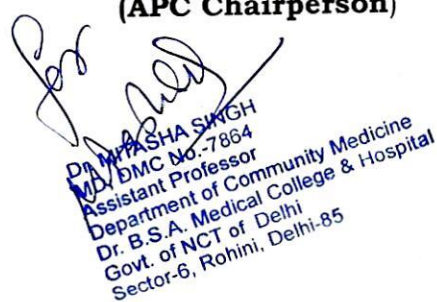 (APC Chairperson)
for
Dr. MITASHA SINGH
MD, DMC No.-7864
Assistant Professor
Department of Community Medicine
Dr. B.S.A. Medical College & Hospital
Govt. of NCT of Delhi
Sector-6, Rohini, Delhi-85